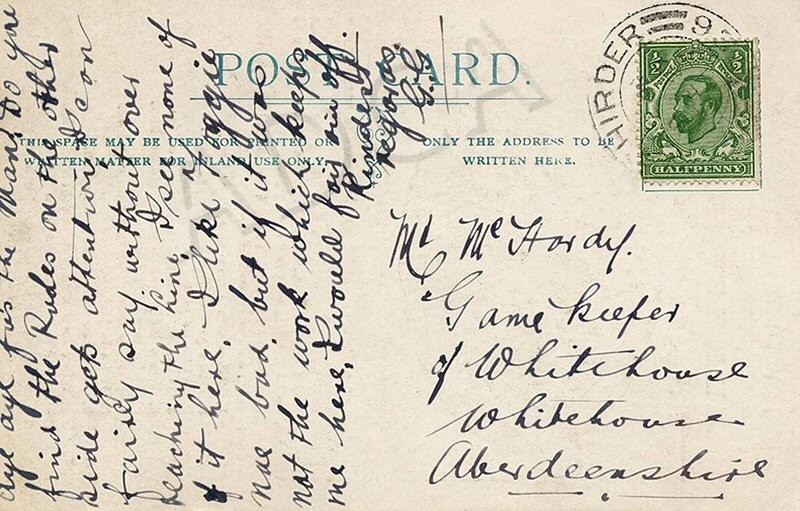 POST CARD.
THIS SPACE MAY BE USED FOR PRINTED OR
WRITTEN MATTER FOR INLAND USE ONLY.
ONLY THE ADDRESS TO BE
WRITTEN HERE.
HIRDER 9
½ ½
HALFPENNY
aye aye fus the Man. Do you
find the Rudes on the other
side gets I can
fairly say without over
reaching the line, I see none of
it here. I like Logie
nae bad, but if it was
not the work which keeps
me here, I would fair rin off.
Kindest
regards.
G.G.
Mr McHardy.
Gamekeeper
of Whitehouse
Whitehouse
Aberdeenshire